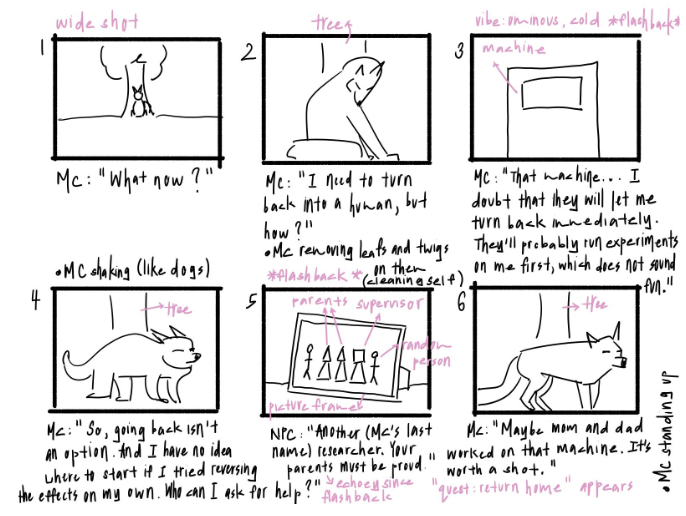 wide shot
1
MC: "What now?"
tree
2
MC: "I need to turn
back into a human, but
how?"
•MC removing leafs and twigs
on them
(cleaning self)
vibe: ominous, cold *flashback*
3
machine
MC: "That machine... I
doubt that they will let me
turn back immediately.
They'll probably run experiments
on me first, which does not sound
fun."
•MC shaking (like dogs)
4
tree
MC: "So, going back isn't
an option. And I have no idea
where to start if I tried reversing
the effects on my own. Who can I ask for help?"
*flashback*
5
parents
supervisor
random
person
picture frame
NPC: "Another (MC's last
name) researcher. Your
parents must be proud."
echoey since
flashback
6
tree
MC: "Maybe mom and dad
worked on that machine. It's
worth a shot."
"quest: return home" appears
•MC standing up